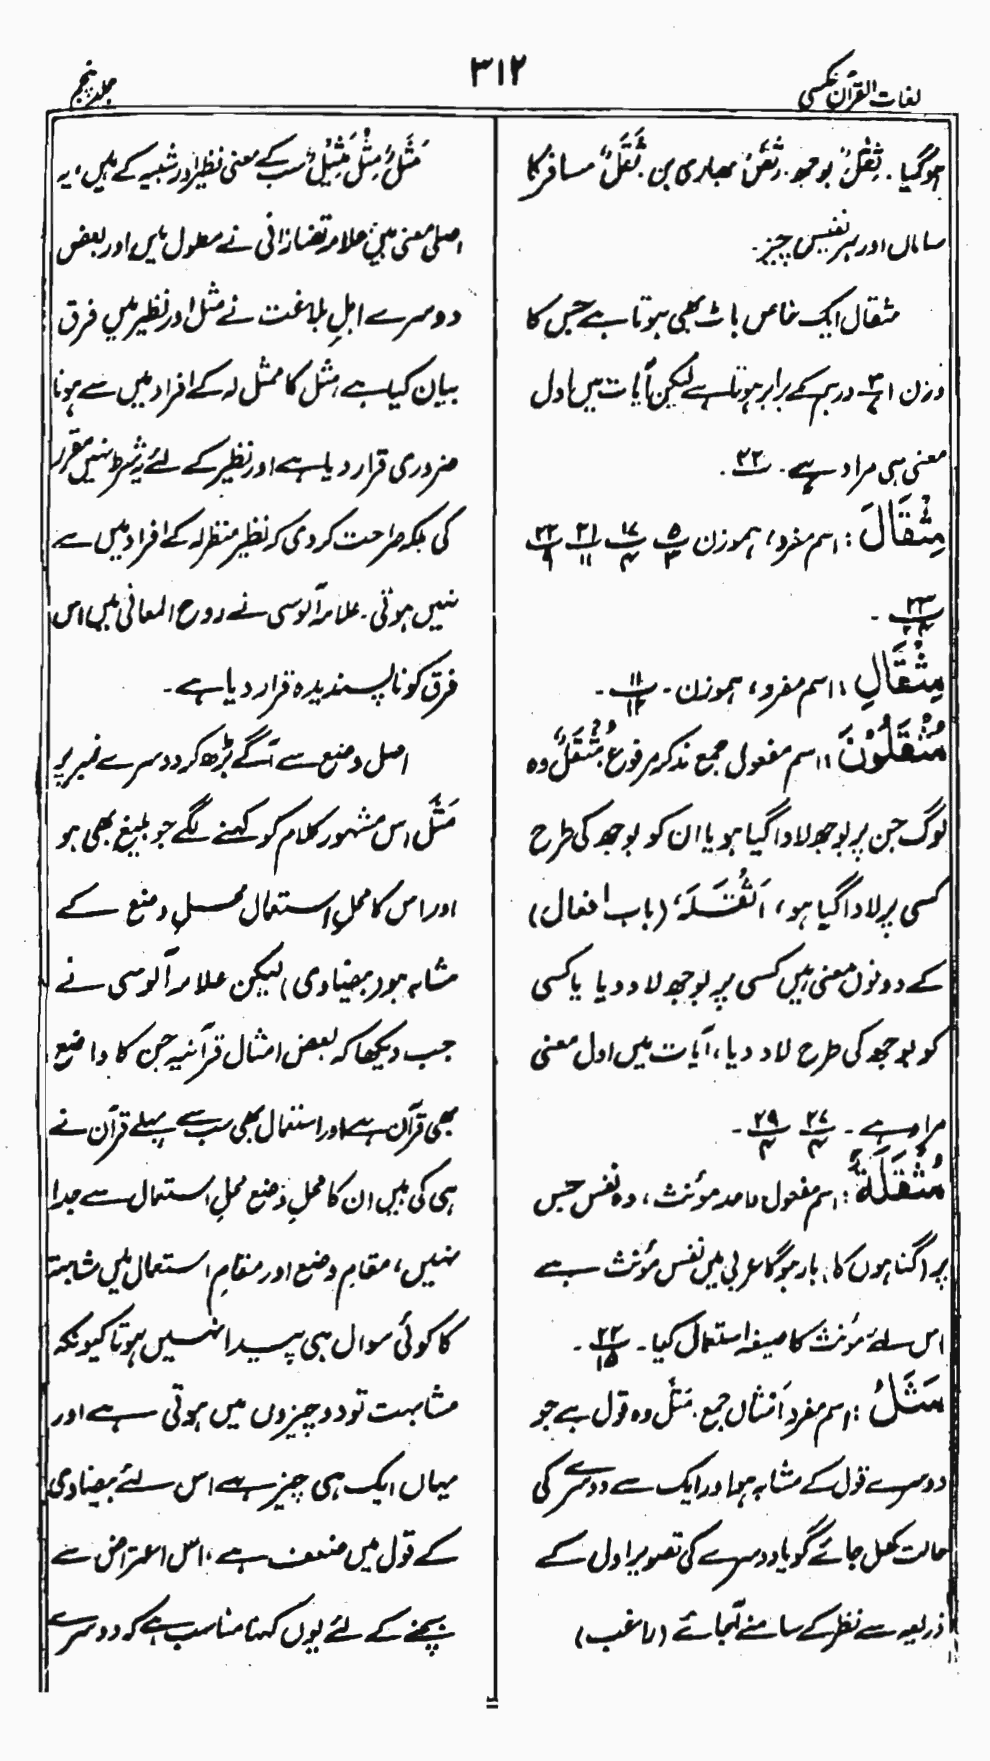 لغات القرآن عکسی
۳۱۲
جلد پنجم
ہوگیا۔ ثِقْلٌ بوجھ۔ ثِقَلٌ بھاری پن۔ ثَقَلٌ مسافر کا
سامان اور ہر نفیس چیز۔
مثقال ایک خاص باٹ بھی ہوتا ہے جس کا
وزن ۱ ۳/۷ درہم کے برابر ہوتا ہے لیکن آیات میں اول
معنی ہی مراد ہے۔ ۲۲۔
مِثْقَالَ: اسم مفرد، ہموزن ۵/۳ ۱۷/۴ ۲۱/۱۱ ۲۲/۹
۲۳/۲۴۔
مِثْقَالِ: اسم مفرد، ہموزن۔ ۱۱/۱۲۔
مُثْقَلُوْنَ: اسم مفعول جمع مذکر مرفوع مُثْقَلٌ وہ
لوگ جن پر بوجھ لادا گیا ہو یا ان کو بوجھ کی طرح
کسی پر لادا گیا ہو، اَثْقَلَہٗ (باب افعال)
کے دونوں معنی ہیں کسی پر بوجھ لاد دیا یا کسی
کو بوجھ کی طرح لاد دیا، آیات میں اول معنی
مراد ہے۔ ۲۷/۴ ۲۹/۴۔
مُثْقَلَةٌ: اسم مفعول واحد مونث، وہ نفس جس
پر (گناہوں کا) بار ہوگا عربی میں نفس مؤنث ہے
اس لئے مؤنث کا صیغہ استعمال کیا۔ ۲۲/۱۵۔
مَثَلُ: اسم مفرد اَمْثال جمع۔ مَثَل وہ قول ہے جو
دوسرے قول کے مشابہ ہو اور ایک سے دوسرے کی
حالت کھل جائے گویا دوسرے کی تصویر اول کے
ذریعہ سے نظر کے سامنے آجائے (راغب)
مَثَلٌ، مِثْلٌ، مَثِیْلٌ سب کے معنی نظیر اور شبیہ کے ہیں، یہ
اصلی معنی ہیں علامہ تفتازانی نے مطول میں اور بعض
دوسرے اہلِ بلاغت نے مثل اور نظیر میں فرق
بیان کیا ہے، مثل کا ممثل لہ کے افراد میں سے ہونا
ضروری قرار دیا ہے اور نظیر کے لئے یہ شرط نہیں مقرر
کی بلکہ صراحت کردی کہ نظیر منظر لہ کے افراد میں سے
نہیں ہوتی۔ علامہ آلوسی نے روح المعانی میں اس
فرق کو ناپسندیدہ قرار دیا ہے۔
اصل وضع سے آگے بڑھ کر دوسرے نمبر پر
مَثَل اس مشہور کلام کو کہنے لگے جو بلیغ بھی ہو
اور اس کا محلِ استعمال محلِ وضع کے
مشابہ ہو (بیضاوی) لیکن علامہ آلوسی نے
جب دیکھا کہ بعض امثال قرآنیہ جن کا واضع
بھی قرآن ہے اور استعمال بھی سب سے پہلے قرآن نے
ہی کی ہیں ان کا محلِ وضع محلِ استعمال سے جدا
نہیں، مقامِ وضع اور مقامِ استعمال میں مشابہت
کا کوئی سوال ہی پیدا نہیں ہوتا کیونکہ
مشابہت تو دو چیزوں میں ہوتی ہے اور
یہاں ایک ہی چیز ہے اس لئے بیضاوی
کے قول میں ضعف ہے، اس اعتراض سے
بچنے کے لئے یوں کہنا مناسب ہے کہ دوسرے